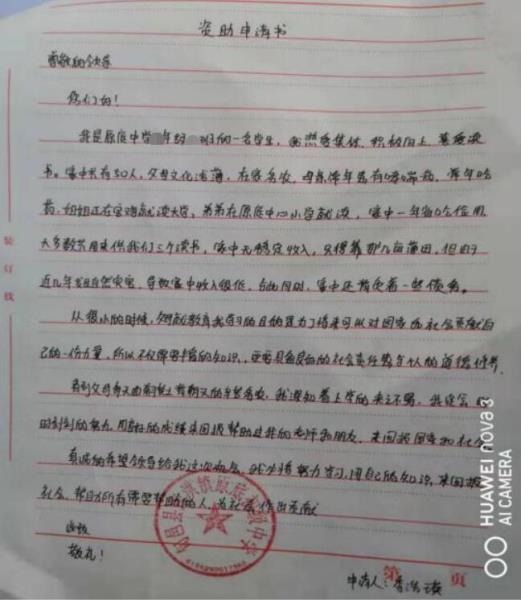 资助申请书
尊敬的领导
你们好!
我是原庄中学 年级 班的一名学生,我热爱集体,积极向上,喜爱读
书。家中共有五口人,父母文化浅薄,在家务农,母亲常年患有 病,常年吃
药,姐姐正在宝鸡就读大学,弟弟在原庄中心小学就读,家中一年的全部费用
大多数只用来供我们三个读书,家中无稳定收入,只得靠那几亩薄田,但由于
近几年的自然灾害,导致家中收入很低,与此同时,家中还背负着一些债务。
从很小的时候,父母就教育我学习的目的是为了将来可以对国家的社会贡献自
己的一份力量,所以不仅需要丰富的知识,更要具备良好的社会责任感与个人的道德修养。
看到父母 ,我深知着上学的来之不易,我谨
时刻刻的努力,用最好的成绩来回报帮助过我的老师和朋友,来回报国家和社会
真诚的希望领导给我这次机会,我会将努力学习,用自己的知识,来回报
社会,帮助所有需要帮助的人,为社会作出贡献
此致
敬礼!
申请人:李
第 页
装订线
HUAWEI nova 3
AI CAMERA